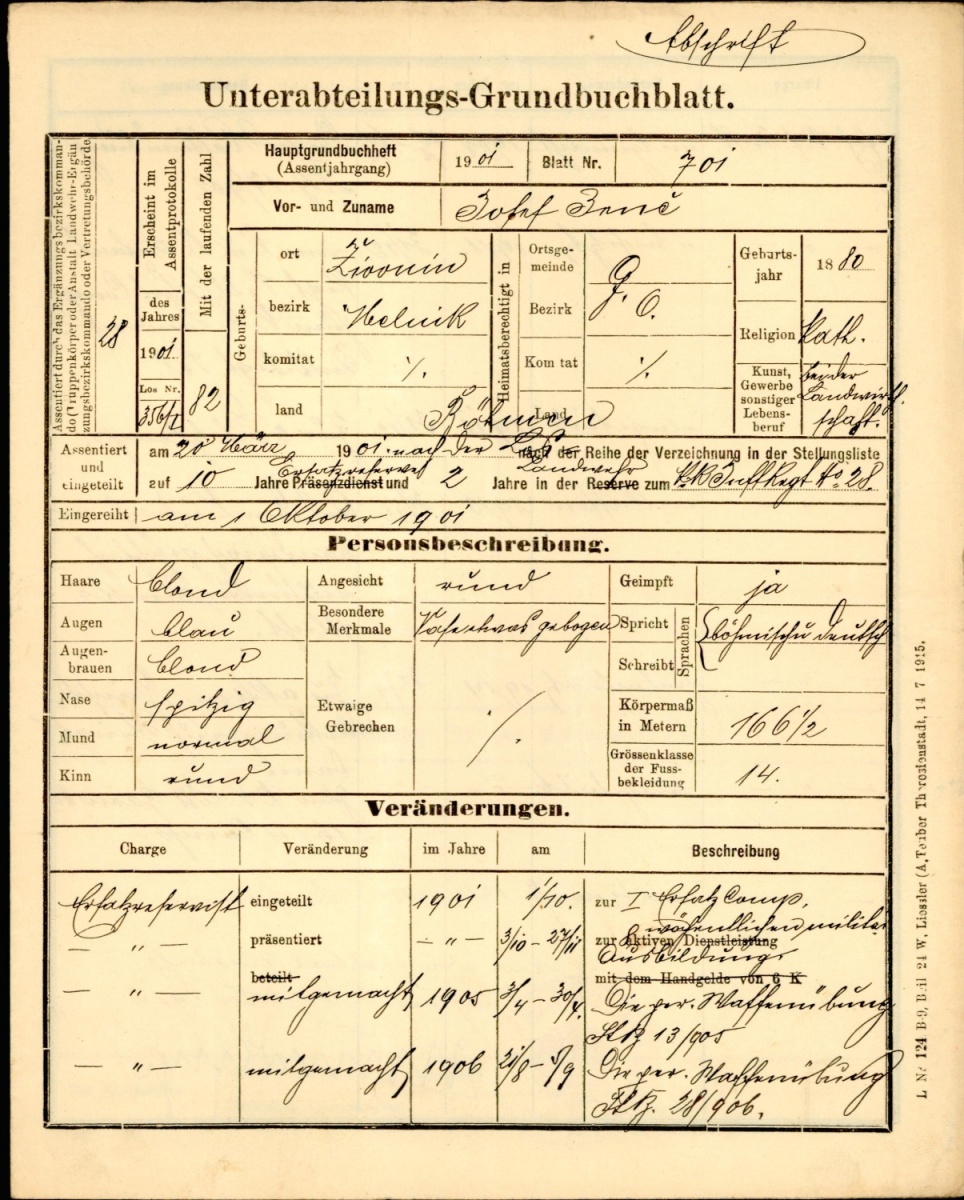 Abschrift
Unterabteilungs-Grundbuchblatt.
Assentiert durch das Ergänzungsbezirkskomman-
do (Truppenkörper oder Anstalt Landwehr-Ergän
zungsbezirkskommando oder Vertretungsbehörde
28
Erscheint im
Assentprotokolle
des
Jahres
1901
Los Nr.
356/I
Mit der laufenden Zahl
82
Hauptgrundbuchheft
(Assentjahrgang)
1901
Blatt Nr.
701
Vor- und Zuname
Josef Zenč
Geburts-
ort
Živonin
bezirk
Melnik
komitat
·/.
land
Böhmen
Heimatsberechtigt in
Ortsge-
meinde
G.
Bezirk
O.
Kom tat
·/.
Land
Geburts-
jahr
1880
Religion
kath.
Kunst,
Gewerbe
sonstiger
Lebens-
beruf
bei der
Landwirt
schaft.
Assentiert
und
eingeteilt
am 20 März 1901. nach der nach der Reihe der Verzeichnung in der Stellungsliste
Ersatzreserve Landwehr
auf 10 Jahre Präsenzdienst und 2 Jahre in der Reserve zum k.k. InftRegt No 28.
Eingereiht am 1 Oktober 1901
Personsbeschreibung.
Haare blond
Angesicht rund
Geimpft ja
Augen blau
Besondere
Merkmale
Nase etwas gebogen
Spricht
Schreibt
Sprachen
böhmisch u deutsch
Augen-
brauen
blond
Nase spitzig
Etwaige
Gebrechen
·/.
Körpermaß
in Metern
166 1/2
Mund normal
Kinn rund
Grössenklasse
der Fuss-
bekleidung
14.
Veränderungen.
Charge Veränderung im Jahre am Beschreibung
Ersatzreservist eingeteilt 1901 1/10. zur I ErsatzComp.
— " — präsentiert — " — 3/10 - 27/11 zur aktiven Dienstleistung
8 wöchentlichen militär
Ausbildung
beteilt
mit dem Handgelde von 6 K
— " — mitgemacht 1905 3/4 - 30/4. Die per. Waffenübung
StBz 13/905
— " — mitgemacht 1906 21/8 - /9 Die per. Waffenübung
StBz. 28/906.
L Nr 124 B-9, Beil 24 W, Liessler (A. Teuber Theresienstadt, 14 7 1915.